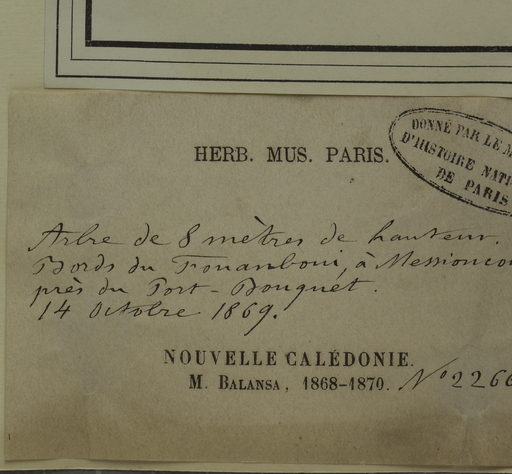 HERB. MUS. PARIS.
DONNÉ PAR LE
D'HISTOIRE
DE PARIS
Arbre de 8 mètres de hauteur.
Bords du Fouanboui, à
près du Port-Bouquet.
14 Octobre 1869.
NOUVELLE CALÉDONIE.
M. BALANSA, 1868-1870. N° 226